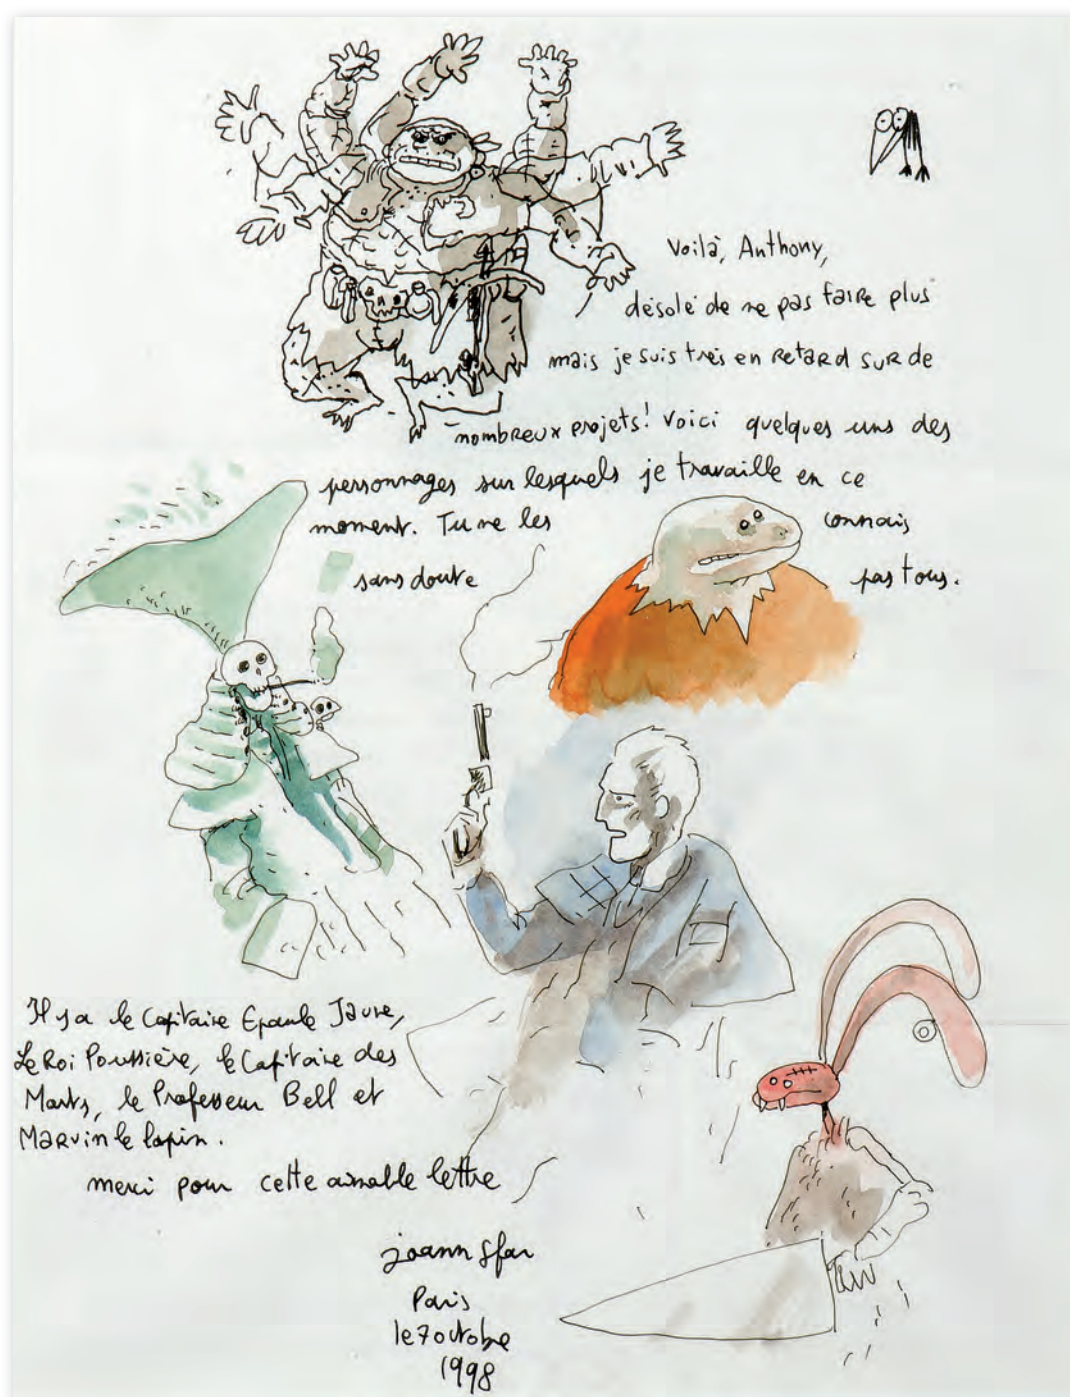 Voilà, Anthony,
désolé de ne pas faire plus
mais je suis très en retard sur de
nombreux projets! Voici quelques uns des
personnages sur lesquels je travaille en ce
moment. Tu ne les connais
sans doute pas tous.
Il y a le Capitaine Epaule Jaune,
Le Roi Poussière, le Capitaine des
Morts, le Professeur Bell et
Marvin le lapin.
merci pour cette aimable lettre
joann Sfar
Paris
le 7 octobre
1998